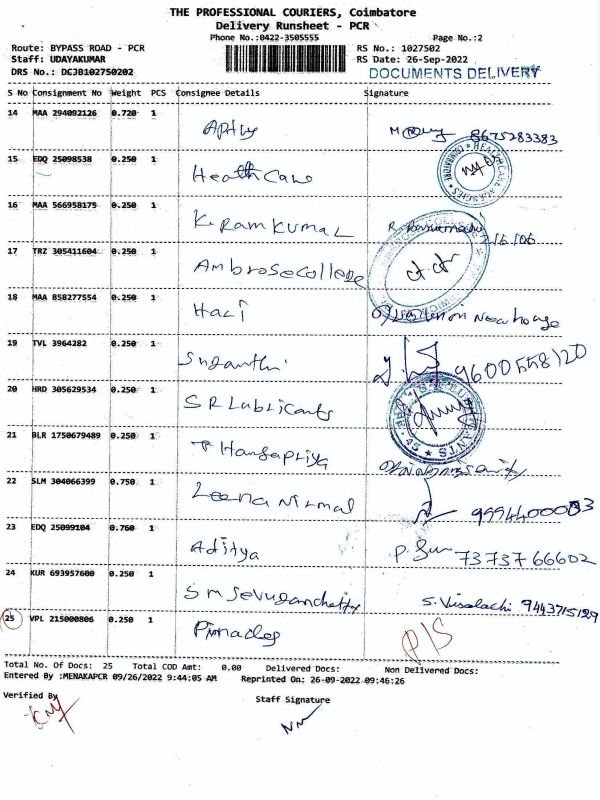 THE PROFESSIONAL COURIERS, Coimbatore
Delivery Runsheet - PCR
Phone No.:0422-3505555 Page No.:2
Route: BYPASS ROAD - PCR RS No.: 1027502
Staff: UDAYAKUMAR RS Date: 26-Sep-2022
DRS No.: DCJB102750202 DOCUMENTS DELIVERY
S No Consignment No Weight PCS Consignee Details Signature
14 MAA 294092126 0.720 1 8675283383
15 EDQ 25098538 0.250 1 Health Care
16 MAA 566958175 0.250 1 K. Ram Kumar
17 TRZ 305411604 0.250 1 Ambrose College
18 MAA 858277554 0.250 1 Hari New house
19 TVL 3964282 0.250 1 Suganthi 9600558120
20 HRD 305629534 0.250 1 S R Lubricants
21 BLR 1750679489 0.250 1
22 SLM 304066399 0.750 1 Leena Nirmal
23 EDQ 25099104 0.760 1 Aditya 7373766602
24 KUR 693957600 0.250 1 S. Visalachi 9443715129
25 VPL 215000806 0.250 1 P/S
Total No. Of Docs: 25 Total COD Amt: 0.00 Delivered Docs: Non Delivered Docs:
Entered By :MENAKAPCR 09/26/2022 9:44:05 AM Reprinted On: 26-09-2022 09:46:26
Verified By Staff Signature